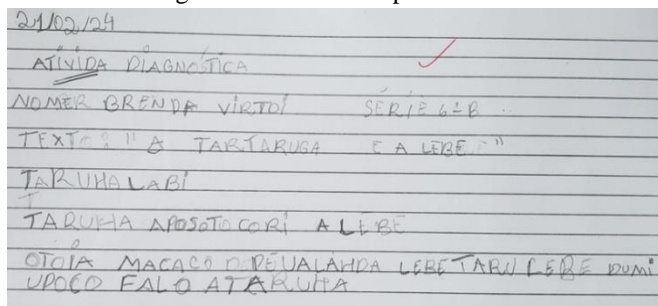 21/02/24
ATIVIDA DIAGNÓSTICA
NOMER BRENDA VIRTOI SÉRIE 6º B
TEXTO: "A TARTARUGA E A LEBE"
TARUHA LABI
T
TARUHA APOSOTO CORI A LEBE
OTOIA MACACO DEUALAHDA LEBE TARU LEBE DUMI
UPOCO FALO ATARUHA